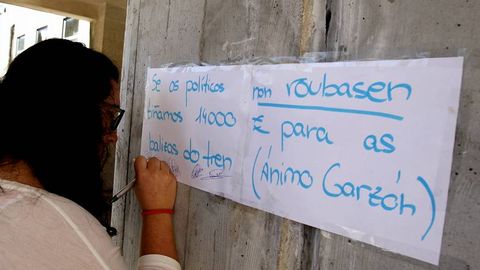 Se os políticos non roubasen
tiñamos 14000 € para as
balizas do tren (Ánimo Garzón)